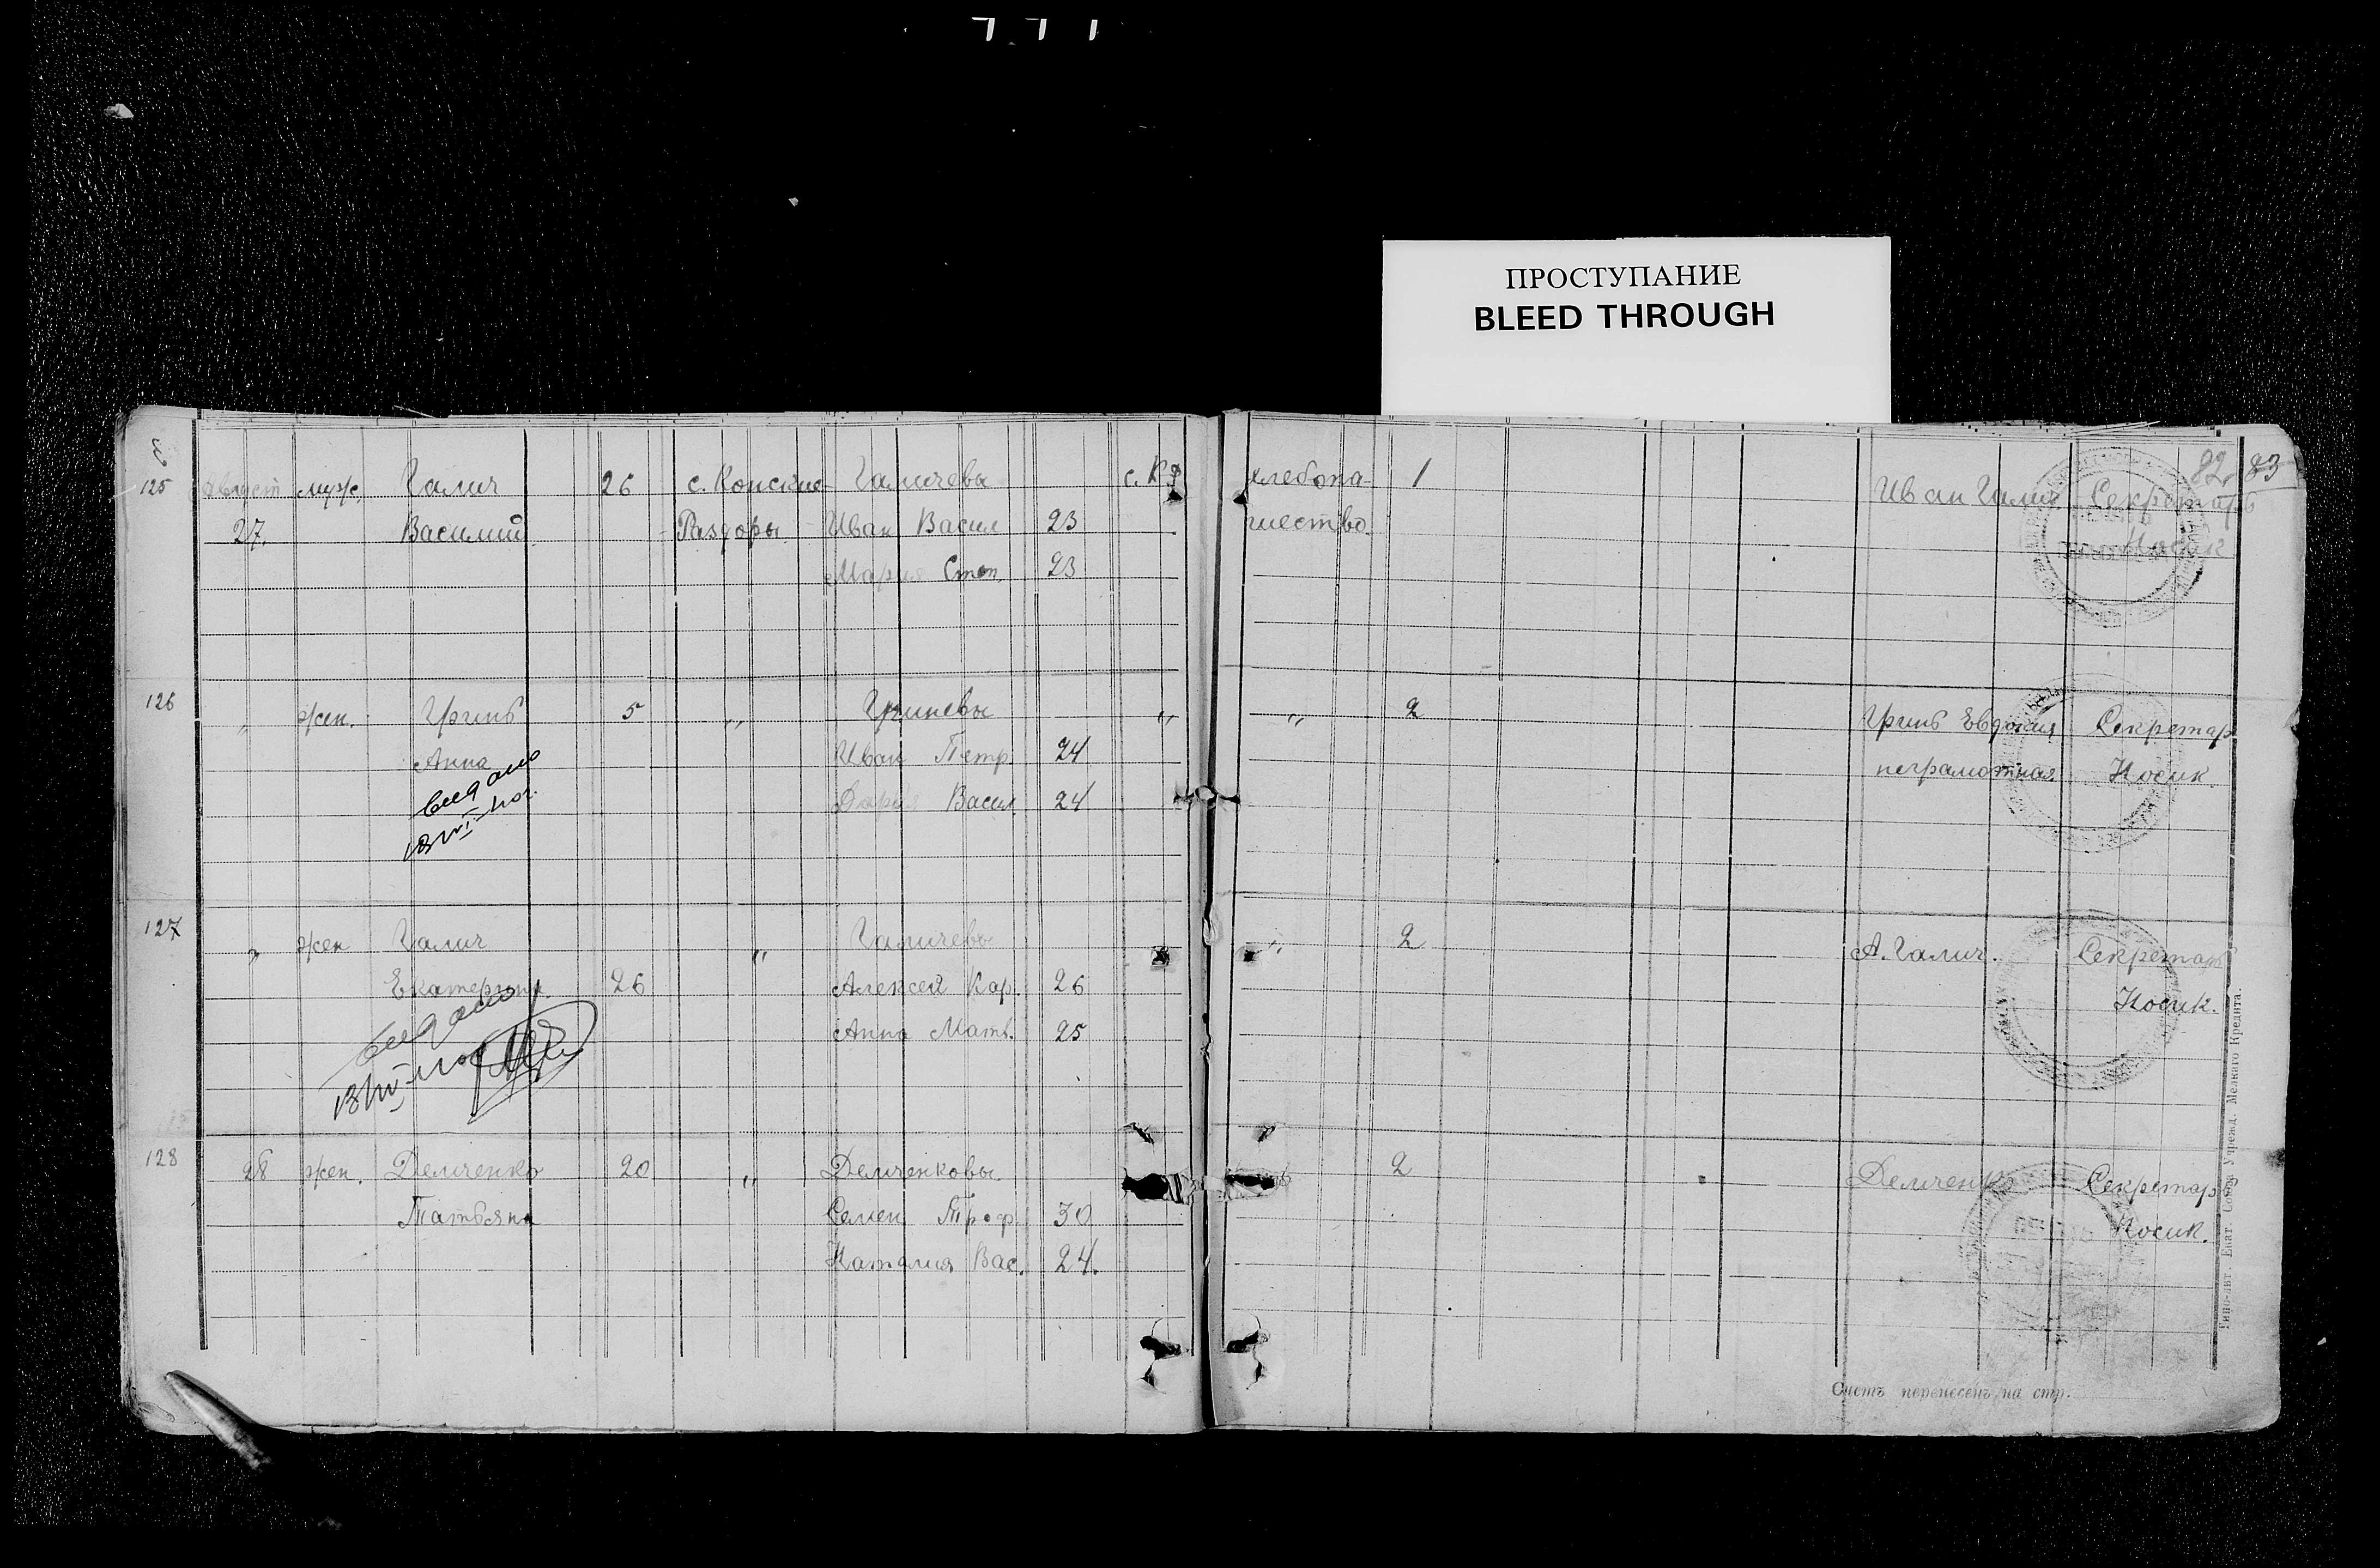 ПРОСТУПАНИЕ
BLEED THROUGH
82 83
125 Август муж. Галич 26 с. Конские- Галичевы с. К Р хлебопа- 1 Иван Галич Секретарь
27. Василий Раздоры. Иван Васил 23 шество. Носик
Мария Степ. 23
126 „ жен. Гринь 5 „ Гриневы „ „ 2 Гринь Евдокия Секретар
Анна Иван Петр. 24 неграмотная Носик
видано Дария Васил. 24
127 „ жен Галич „ Галичевы „ 2 А. Галич. Секретарь
Екатерина 26 Алексей Кар. 26 Носик.
видано Анна Матв. 25
128 28 жен. Демченко 20 „ Демченковы. 2 Демченко Секретар
Татьяна Семен Троф. 30 Носик.
Наталия Вас. 24.
Счетъ перенесенъ на стр.
Типо-лит. Екат. Союза Учрежд. Мелкаго Кредита.